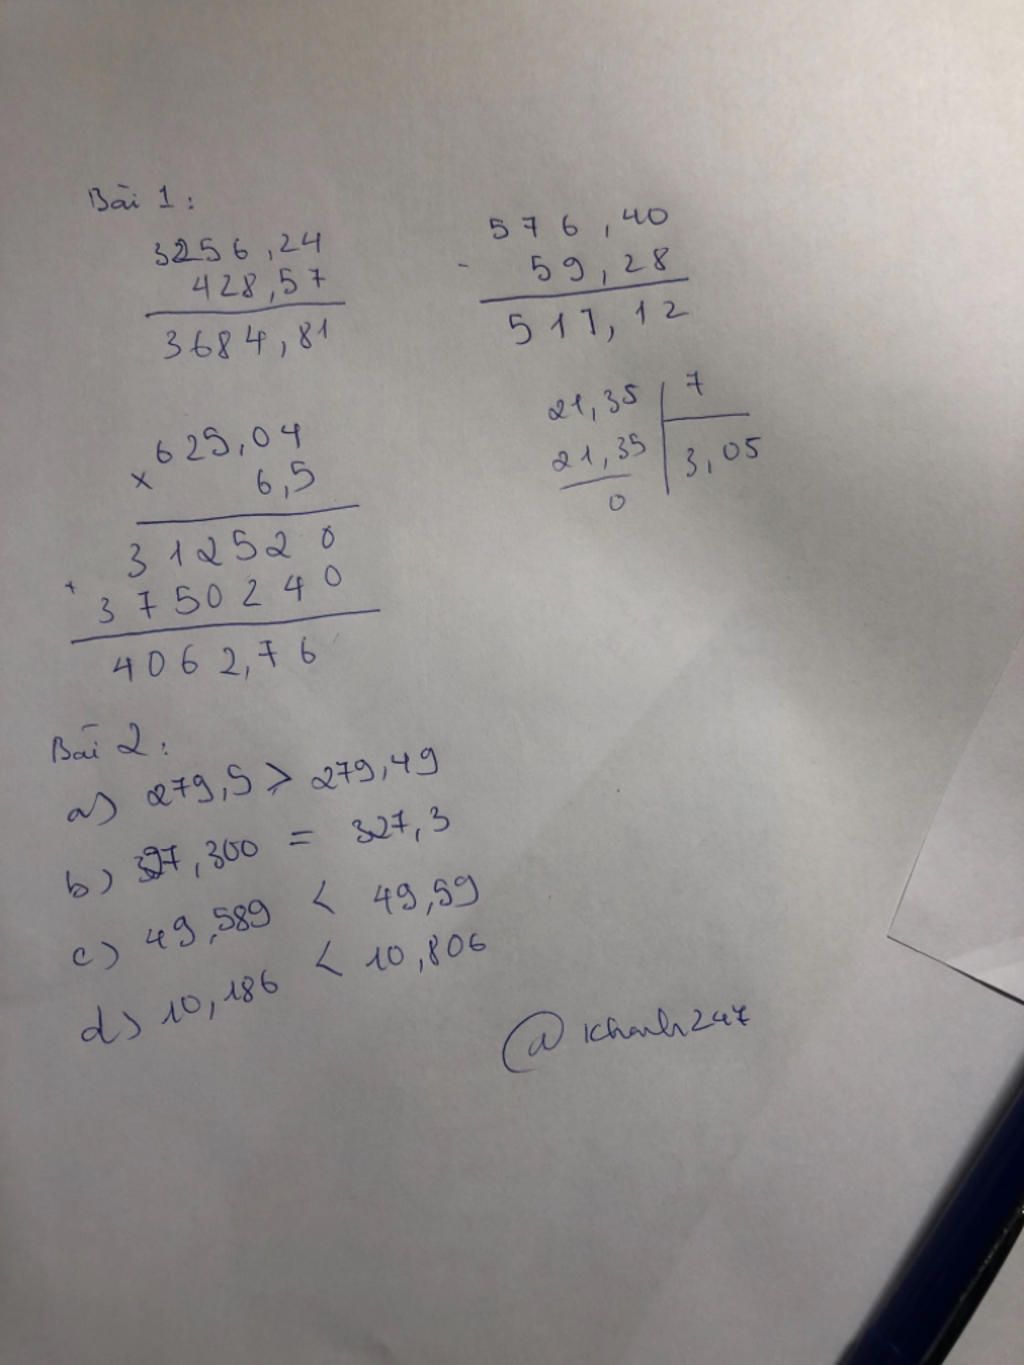 Bài 1:
3256,24
428,57
3684,81
576,40
- 59,28
517,12
625,04
× 6,5
312520 0
+ 3750240 0
4062,76
21,35 7
21,35 3,05
0
Bài 2:
a) 279,5 > 279,49
b) 327,300 = 327,3
c) 49,589 < 49,59
d) 10,186 < 10,806
@khanh247